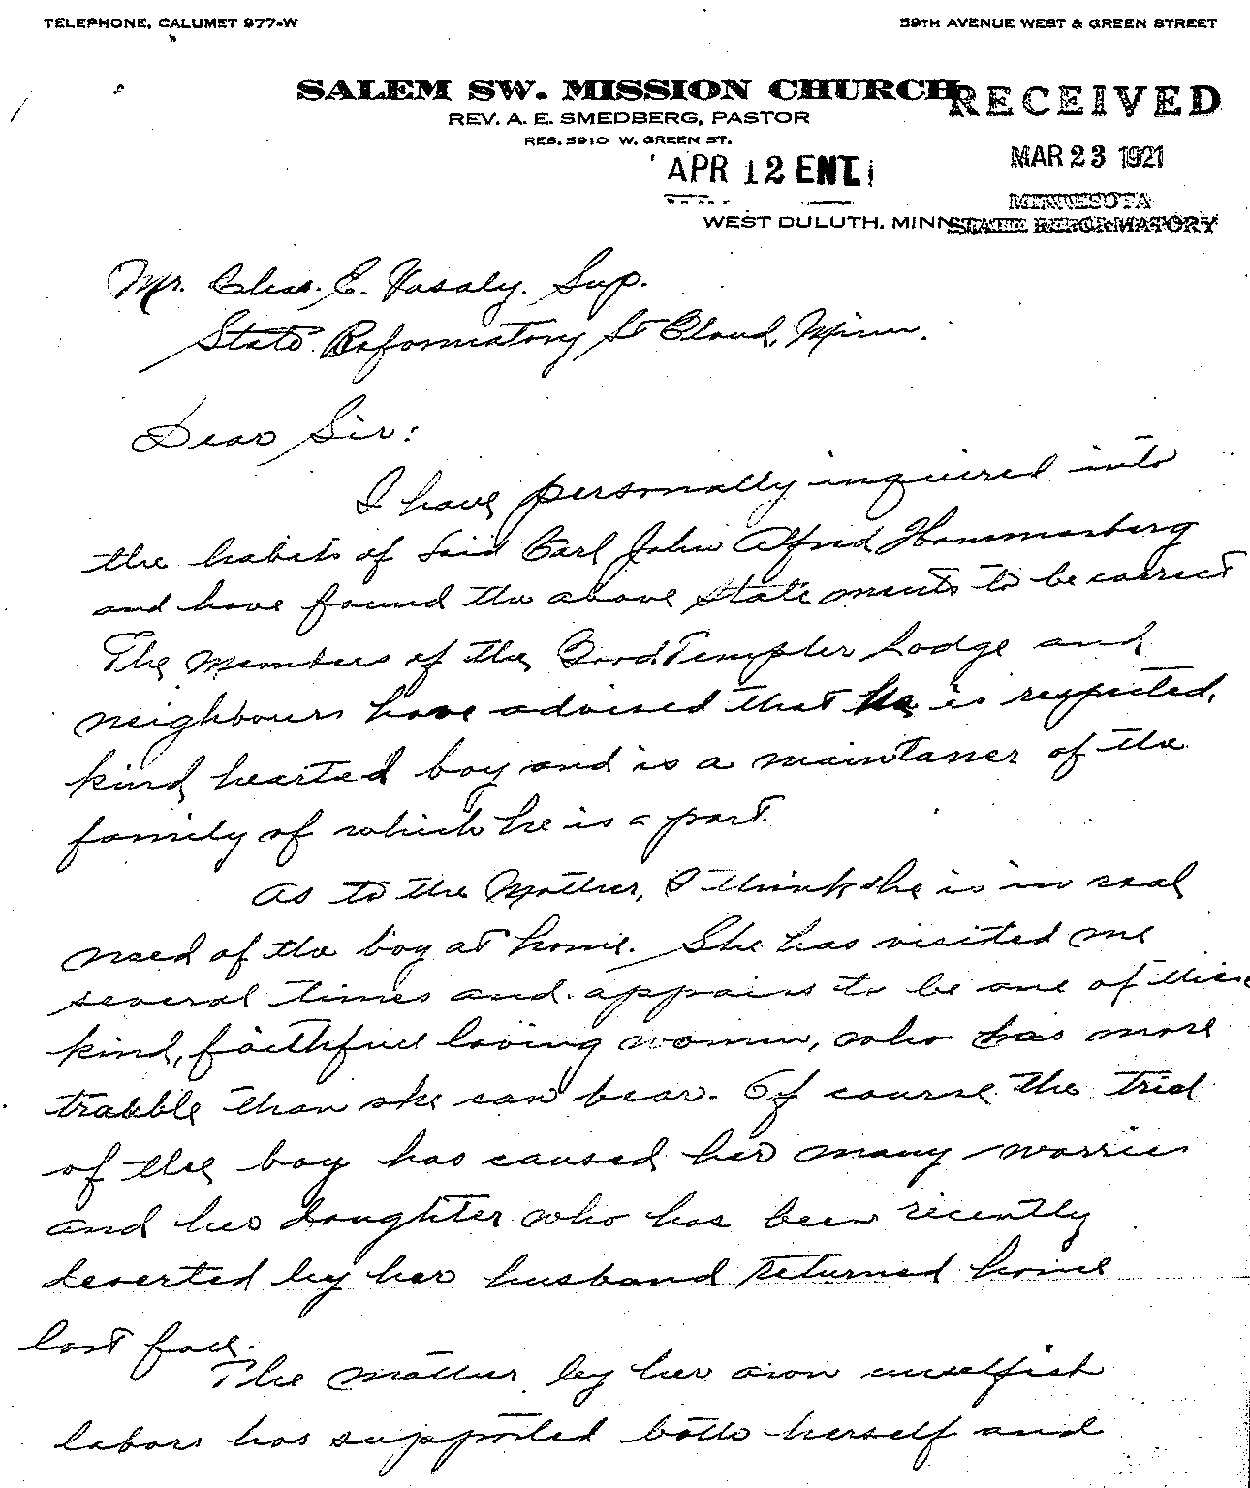 TELEPHONE, CALUMET 977-W
59TH AVENUE WEST & GREEN STREET
SALEM SW. MISSION CHURCH
REV. A. E. SMEDBERG, PASTOR
RES. 5910 W. GREEN ST.
RECEIVED
MAR 23 1921
MINNESOTA
STATE REFORMATORY
APR 12 ENT
WEST DULUTH, MINN
Mr. Chas. E. Vasaly. Sup.
State Reformatory St Cloud, Minn.
Dear Sir:
I have personally inquiered into
the habits of said Carl John Alfred Hammarberg
and have found the above statements to be correct
The members of the Good Templer Lodge and
neighbours have advised that he is respected,
kind hearted boy and is a maintaner of the
family of which he is a part.
As to the Mother, I think she is in real
need of the boy at home. She has visited me
several times and appairs to be one of
kind, faithfull loving women, who has more
trabble than she can bear. Of course the trial
of the boy has caused her many worries
and her daughter who has been recently
deserted by her husband returned home
last fall.
The mother by her own unselfish
labors has supported both herself and